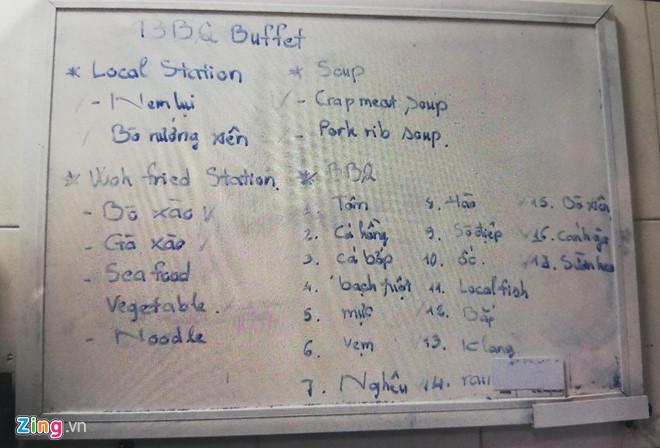 BBQ Buffet
* Local Station
- Nem lụi
Bò nướng xiên
* Soup
- Crap meat soup
- Pork rib soup.
* Wok fried Station.
- Bò xào
- Gà xào
- Sea food
Vegetable.
- Noodle
* BBQ
1. Tôm
2. Cá hồng
3. cá bớp
4. bạch tuột
5. mực
6. Vẹm
7. Nghêu
8. Hào
9. Sò điệp
10. ốc.
11. Local fish
12. Bắp
13. K lang
14. rau
15. Bò xiên
16. Cánh gà
17. Sườn heo
Zing.vn